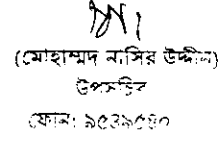 (মোহাম্মদ নাসির উদ্দীন)
উপসচিব
ফোন: ৯৫৩৯৫৪০